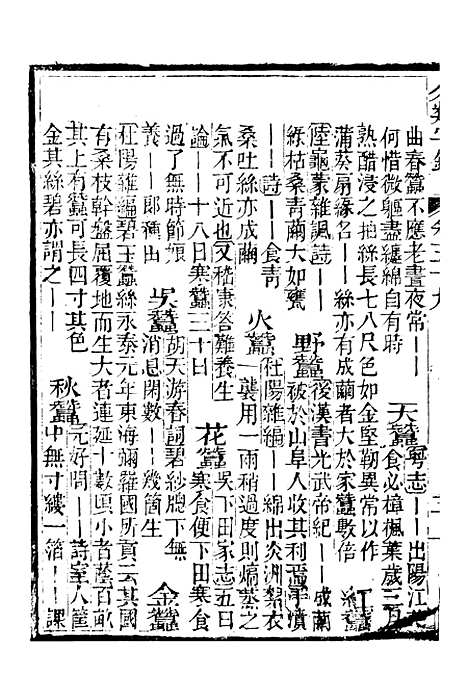 曲春蠶不應老晝夜常——
何惜微軀盡纏綿自有時
天蠶
粵志——出陽江其
食必樟楓葉歲三月
熟醋浸之抽絲長七八尺色如金堅韌異常以作
蒲葵扇緣名——絲亦有成繭者大於家蠶數倍
紅蠶
陸龜蒙雜諷詩——
綠枯桑青繭大如甕
野蠶
後漢書光武帝紀——成繭
被於山阜人收其利焉漬
——詩——食青
桑吐絲亦成繭
火蠶
杜陽雜編——綿出炎洲絮衣
一襲用一兩稍過度則熇蒸之
氣不可近也又嵇康答難養生
論——十八日寒蠶三十日
花蠶
吳下田家志五日
寒食便下田寒食
過了無時節娘
養——郎種田
吳蠶
胡天游春詞碧紗牕下無
消息閑數——幾箇生
金蠶
杜陽雜編碧玉蠶絲永泰元年東海彌羅國所貢云其國
有桑枝幹盤屈覆地而生大者連延十數頃小者蔭百畝
其上有蠶可長四寸其色
金其絲碧亦謂之——
秋蠶
元好問——詩室人筐
中無寸縷一箔——課